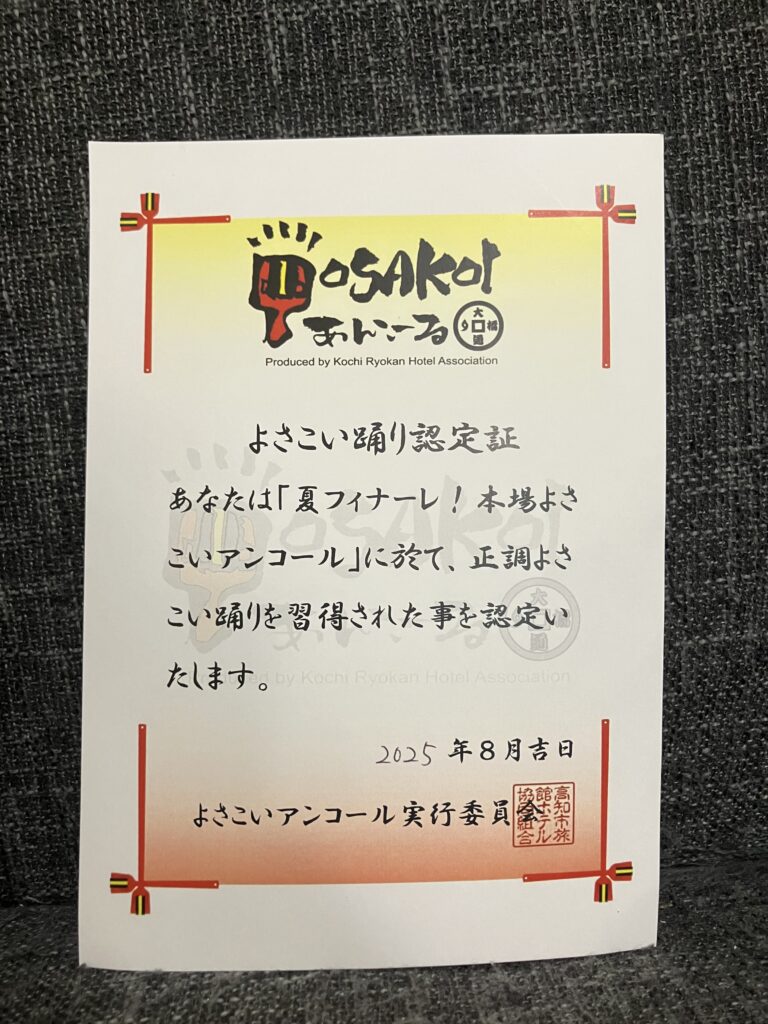 YOSAKOI
あんこーる
大橋通り
Produced by Kochi Ryokan Hotel Association
よさこい踊り認定証
あなたは「夏フィナーレ！本場よさ
こいアンコール」に於て、正調よさ
こい踊りを習得された事を認定い
たします。
2025 年8月吉日
よさこいアンコール実行委員会
高知市旅
館ホテル
協同組合